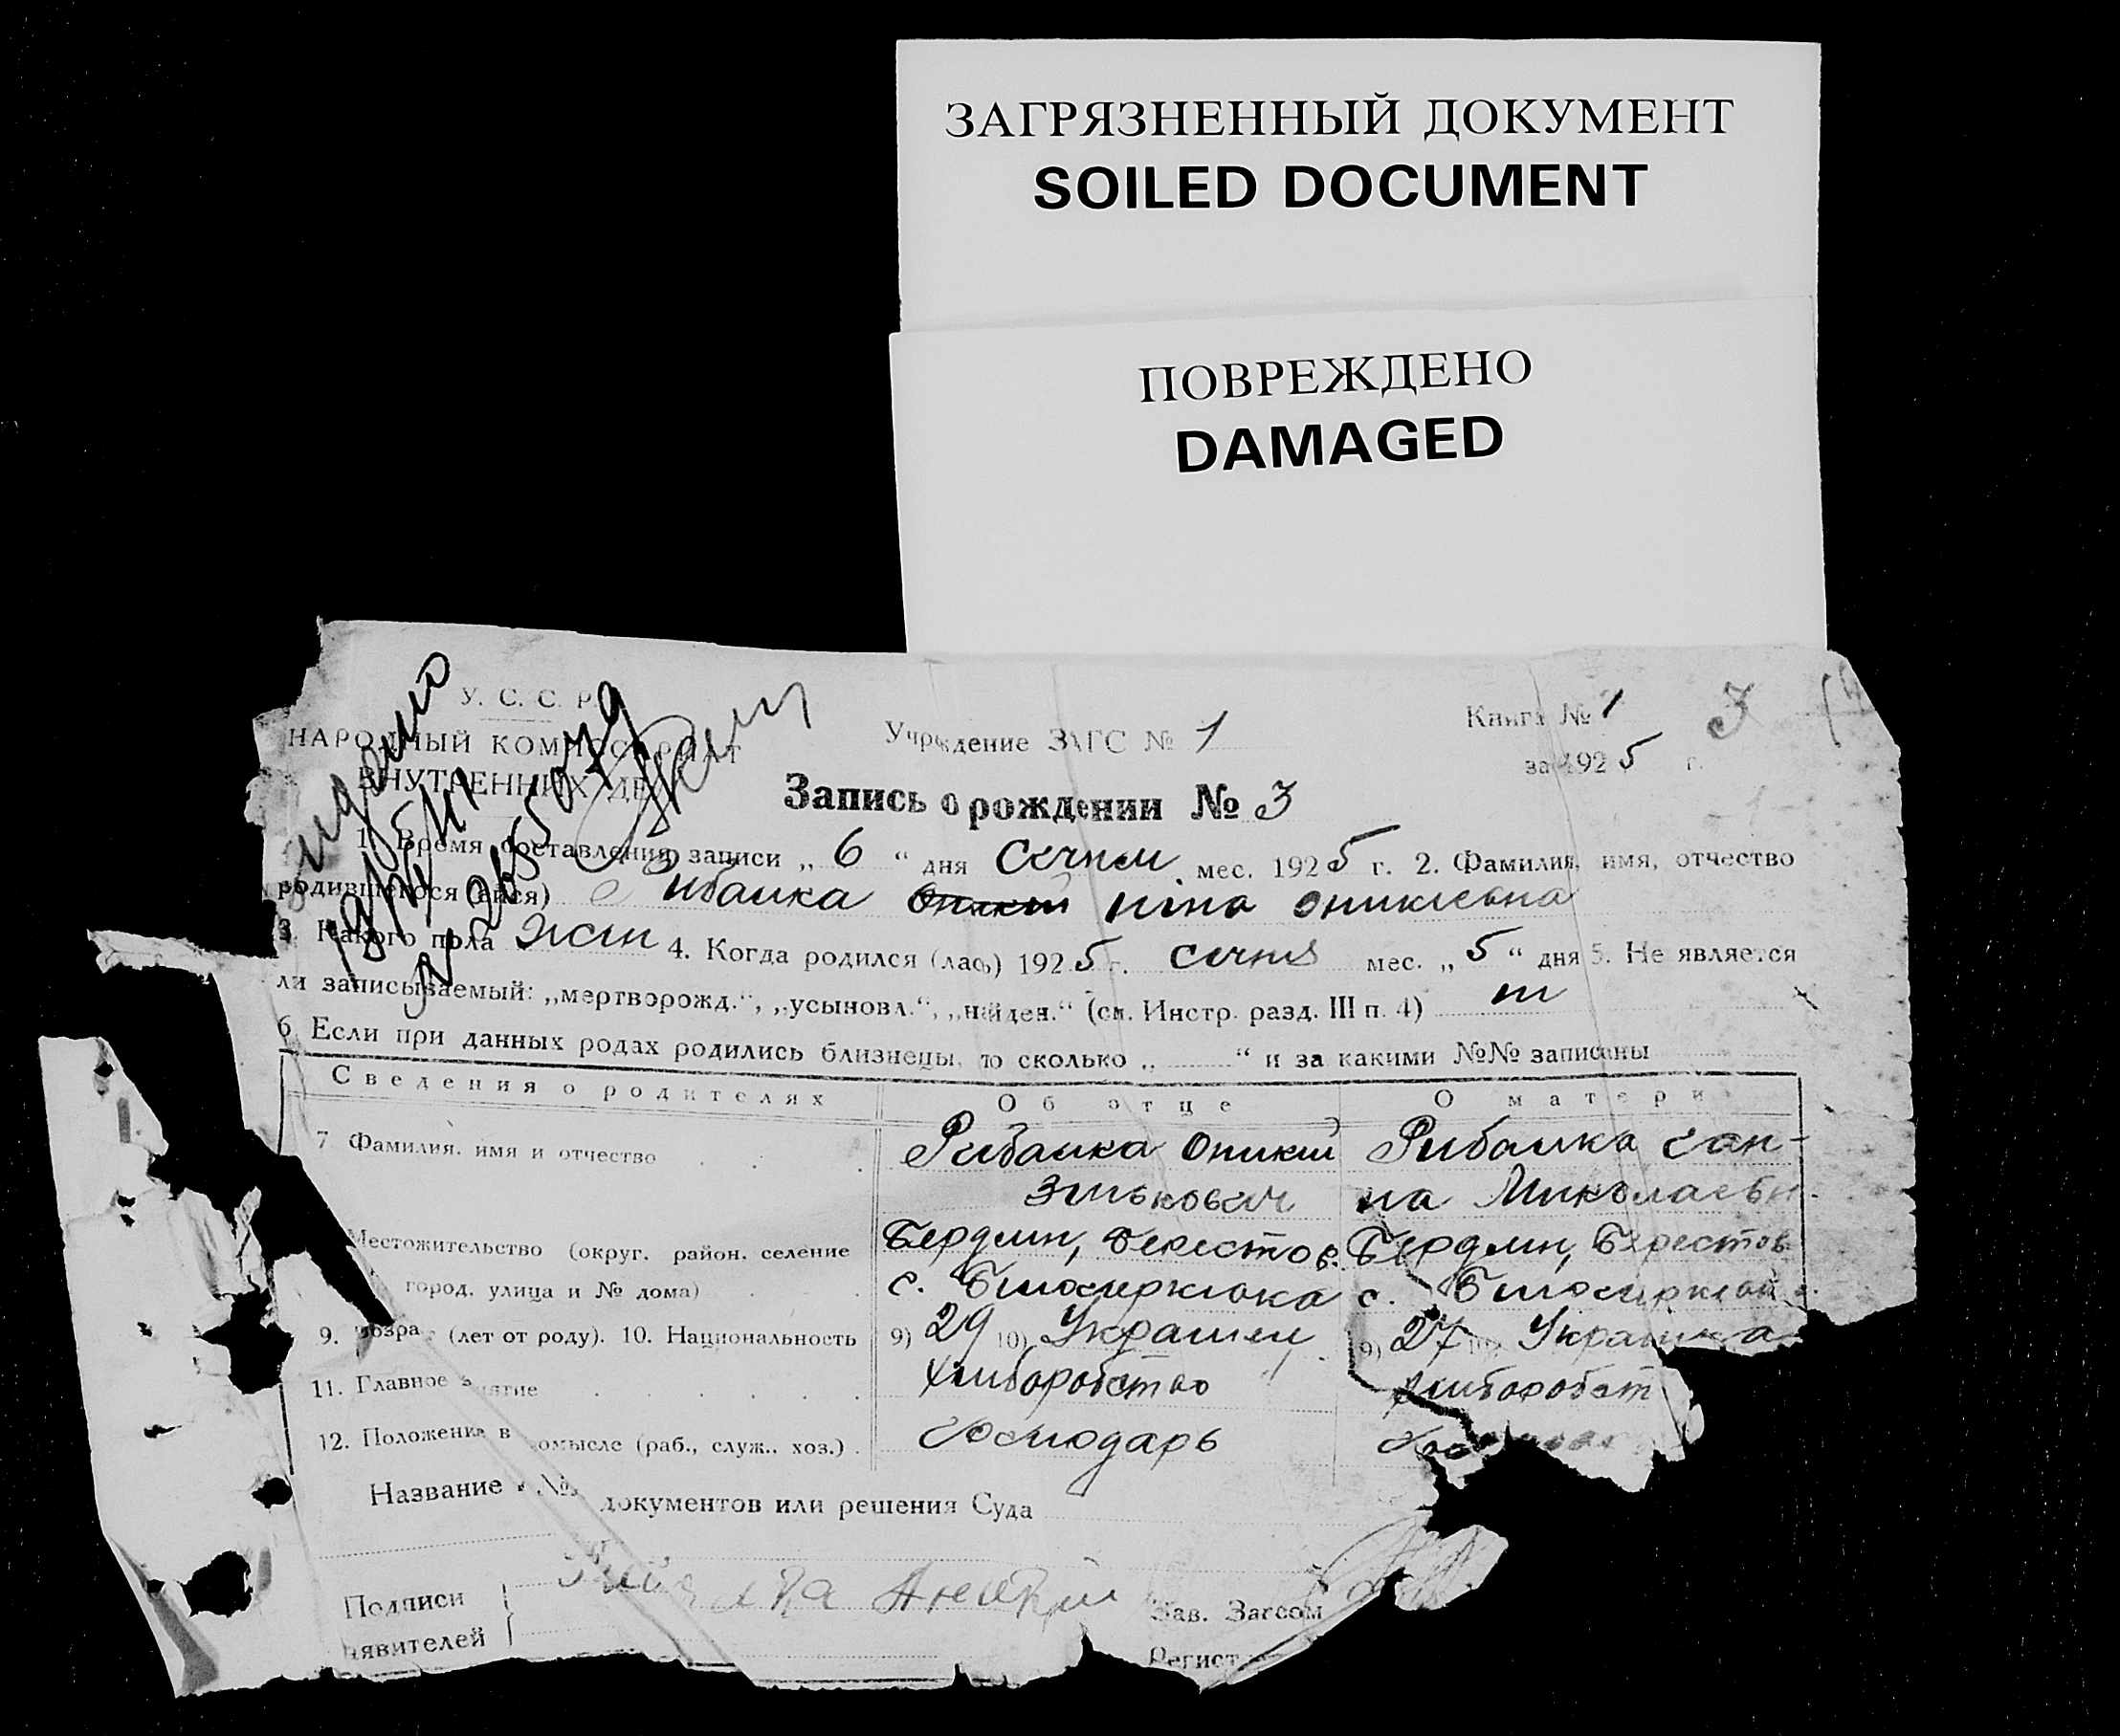 ЗАГРЯЗНЕННЫЙ ДОКУМЕНТ
SOILED DOCUMENT
ПОВРЕЖДЕНО
DAMAGED
У. С. С. Р.
НАРОДНЫЙ КОМИССАРИАТ
ВНУТРЕННИХ ДЕЛ
Учреждение ЗАГС № 1
Книга № 1
3
за 1925 г.
Запись о рождении № 3
1. Время составления записи „ 6 “ дня Січня мес. 1925 г. 2. Фамилия, имя, отчество
родившегося (ейся) Рибалка ніна оникіевна
3. Какого пола жін 4. Когда родился (лась) 1925 г. січня мес. „ 5 “ дня 5. Не является
ли записываемый: „мертворожд.“, „усыновл.“, „найден.“ (см. Инстр. разд. III п. 4)
6. Если при данных родах родились близнецы, то сколько „ “ и за какими №№ записаны
Сведения о родителях Об отце О матери
7 Фамилия, имя и отчество Рибалка оникій Рибалка ган-
Зіньковіч на Миколаєвн.
Местожительство (округ. район. селение Бердян, Берестов. Бердян, Берестов
город, улица и № дома) с. с.
9. Возраст (лет от роду). 10. Национальность 9) 29 10) Українец 9) 27 10) Українка
11. Главное занятие хліборобство хліборобст
12. Положение в промысле (раб., служ., хоз.) господарь
Название и №№ документов или решения Суда
Подписи Рибалка Зав. Загсом
заявителей Регист